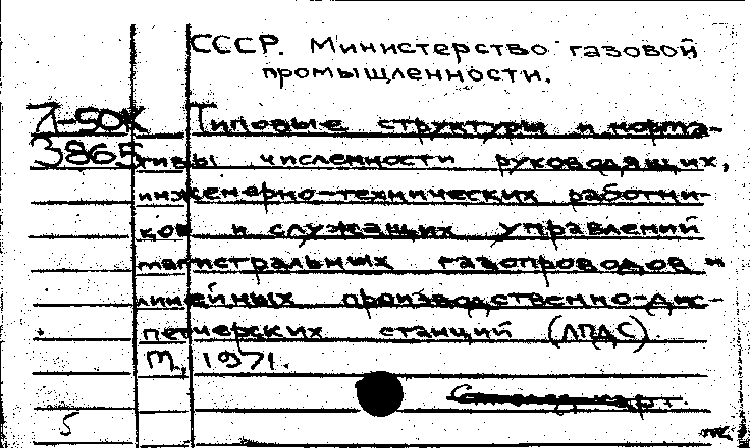 СССР. Министерство газовой
промышленности.
7-50К Типовые структуры и норма-
3865 тивы численности руководящих,
инженерно-технических работни-
ков и служащих управлений
магистральных газопроводов и
линейных производственно-дис-
петчерских станций (ЛПДС).
М, 1971.
5